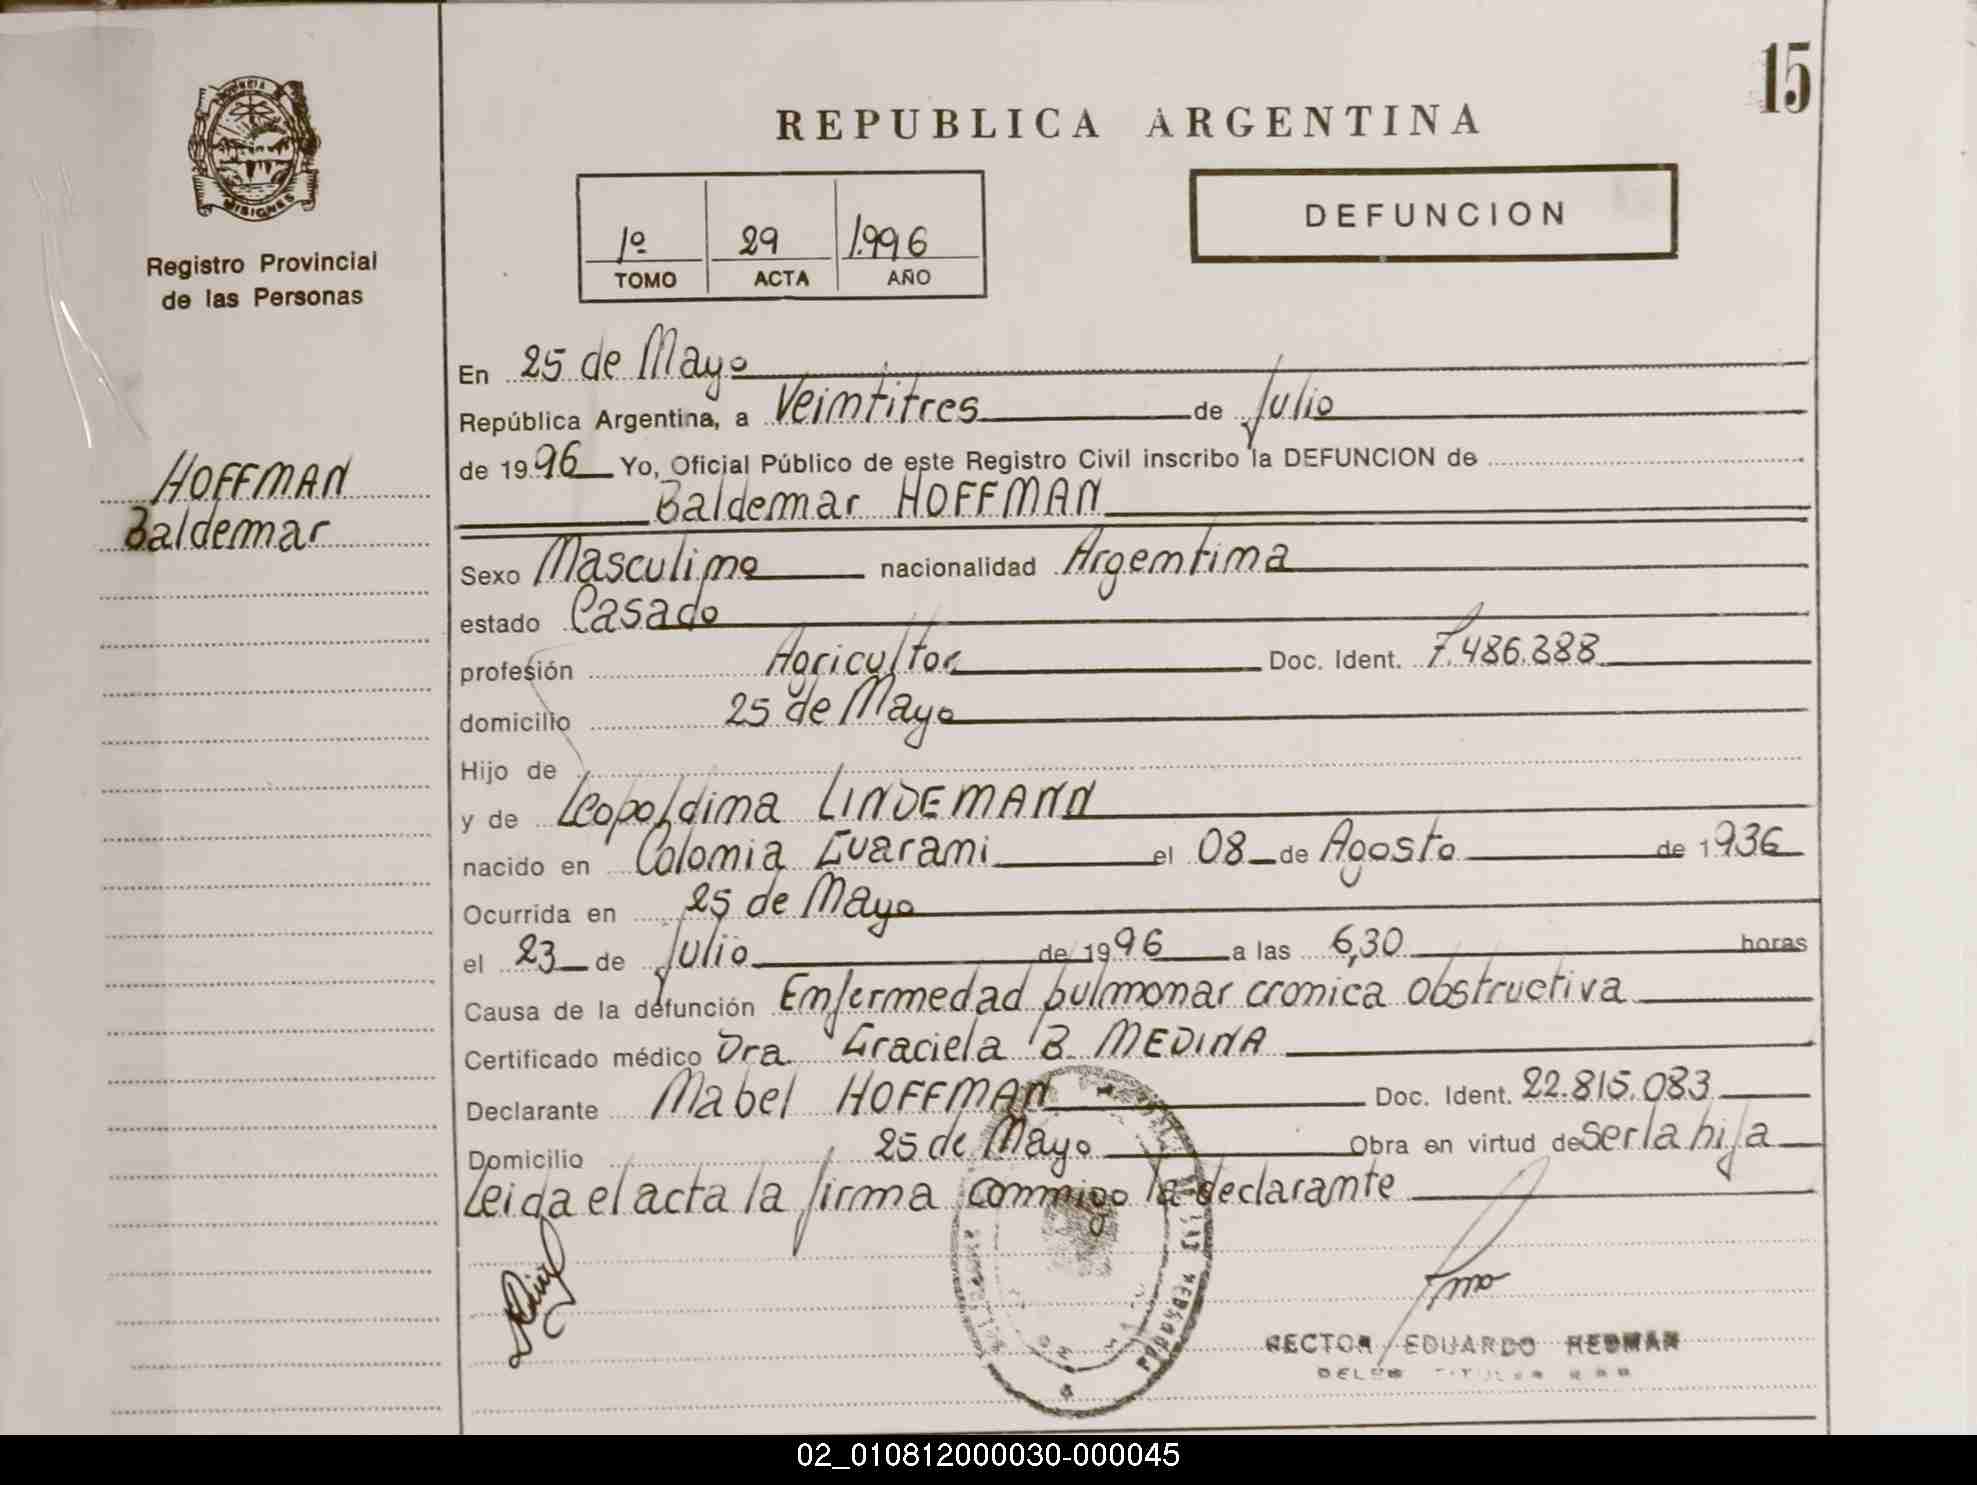 15
REPUBLICA ARGENTINA
MISIONES
Registro Provincial
de las Personas
1º 29 1.996
TOMO ACTA AÑO
DEFUNCION
HOFFMAN
Baldemar
En 25 de Mayo
República Argentina, a Veintitres de Julio
de 1996 Yo, Oficial Público de este Registro Civil inscribo la DEFUNCION de
Baldemar HOFFMAN
Sexo Masculino nacionalidad Argentina
estado Casado
profesión Agricultor Doc. Ident. 7.486.388
domicilio 25 de Mayo
Hijo de
y de Leopoldina LINDEMANN
nacido en Colonia Guarani el 08 de Agosto de 1936
Ocurrida en 25 de Mayo
el 23 de Julio de 1996 a las 6,30 horas
Causa de la defunción Enfermedad pulmonar cronica obstructiva
Certificado médico Dra. Graciela B. MEDINA
Declarante Mabel HOFFMAN Doc. Ident. 22.815.083
Domicilio 25 de Mayo Obra en virtud de Ser la hija
Leida el acta la firma conmigo la declarante
HECTOR EDUARDO REDMAN
02_010812000030-000045